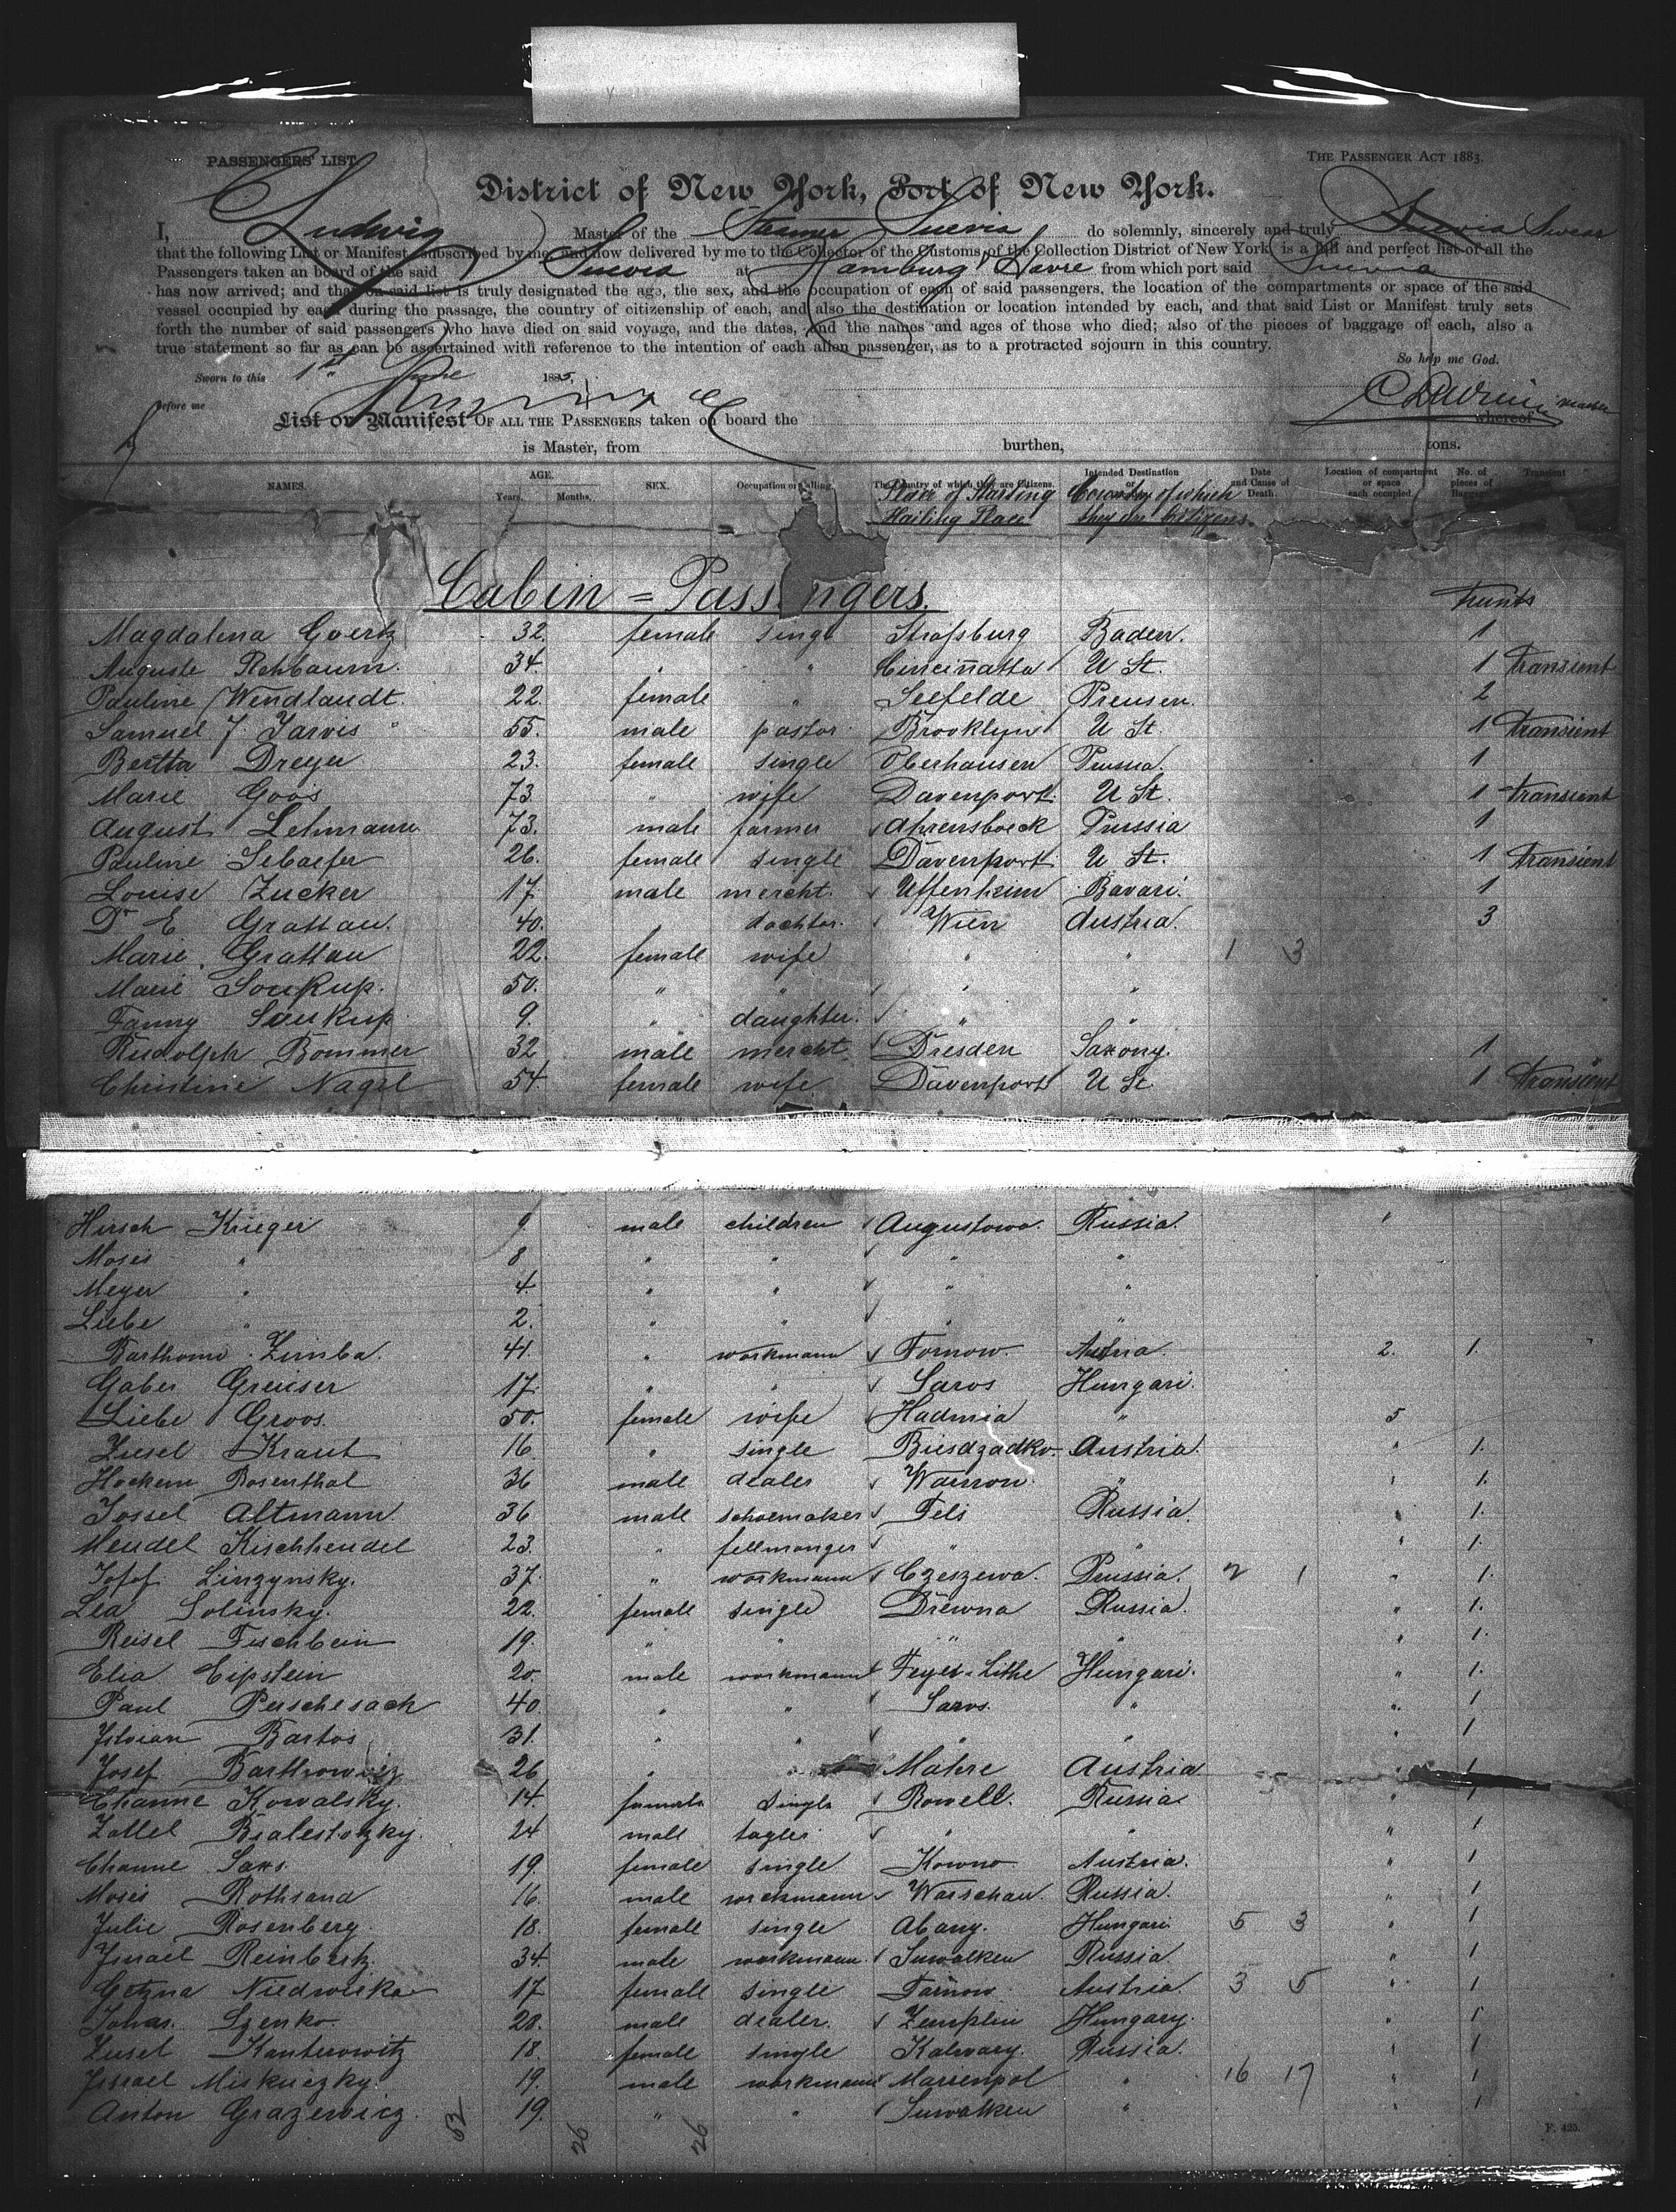 PASSENGERS' LIST.
THE PASSENGER ACT 1883.
District of New York, Port of New York.
I, Ludwig Master of the Steamer Suevia do solemnly, sincerely and truly Swear
that the following List or Manifest, subscribed by me, and now delivered by me to the Collector of the Customs of the Collection District of New York, is a full and perfect list of all the
Passengers taken an board of the said Suevia at Hamburg Havre from which port said Suevia
has now arrived; and that on said list is truly designated the age, the sex, and the occupation of each of said passengers, the location of the compartments or space of the said
vessel occupied by each during the passage, the country of citizenship of each, and also the destination or location intended by each, and that said List or Manifest truly sets
forth the number of said passengers who have died on said voyage, and the dates, and the names and ages of those who died; also of the pieces of baggage of each, also a
true statement so far as can be ascertained with reference to the intention of each alien passenger, as to a protracted sojourn in this country.
So help me God.
Sworn to this 1st June 1885,
Before me
Master
List or Manifest OF ALL THE PASSENGERS taken on board the whereof
is Master, from burthen, tons.
NAMES. AGE. Years. Months. SEX. Occupation or Calling. The Country of which they are Citizens. Intended Destination or Date and Cause of Death. Location of compartment or space each occupied. No. of pieces of Baggage Transient
Place of Starting Country of which
Hailing Place they are Citizens
Cabin = Passengers.
Magdalena Goertz 32. female singl Straßburg Baden. 1
Auguste Rehbaum. 34. " " Cincinnatta U St. 1 Transient
Pauline Wendlandt. 22. female " Seefelde Preusen. 2
Samuel J. Jarvis 55. male pastor Brooklyn U St. 1 Transient
Bertta Dreyer 23. female single Oberhausen Prussia. 1
Marie Goos 73. " wife Davenport. U St. 1 Transient
August Lehmann. 73. male farmer Ahrensboeck Prussia 1
Pauline Schaefer 26. female single Davenport U St. 1 Transient
Louise Zucker 17. male mercht. Uffenheim Bavari. 1
Dr E Grattau. 40. " dochtor. Wien Austria. 3
Marie Grattau 22. female wife " " 1 3
Marie Soukup. 50. " " " "
Fanny Soukup 9. " daughter. " "
Rudolph Bommer 32 male mercht Dresden Saxony. 1
Christine Nagel 54. female wife Davenport U St 1 Transient
Hirsch Krieger 9. male children Augustowo. Russia. 1
Moses " 8 " " " "
Meyer " 4. " " " "
Liebe " 2. " " " "
Barthomo Zimba. 41. " workmann Tornow. Austria. 2. 1.
Gaber Greuser 17. " " Saros Hungari.
Liebe Groos. 50. female wife Hadmia " 5
Zusel Kraut 16 " single Biesdzadko. Austria. " 1.
Hockem Rosenthal 36 male dealer Warrow. " " 1.
Jossel Altmann. 36 male schoemaker Fels Russia. " 1.
Mendel Kischhendel 23. " fellmonger " " " 1.
Josof Linzynsky. 37. " workmann Czeszewa. Prussia. 2 1 " 1.
Lea Solinsky. 22. female single Drewna Russia. " 1.
Reisel Fischbein 19. " " " " " 1.
Elia Eipstein 20. male workmann Feyer-Lithe Hungari. " 1.
Paul Perschesach 40 " " Saros. " " 1
Bartos 31. " " " " " 1
Josef Barthrowicz 26 " " Mähre Austria " 1
Channe Kowalsky. 14. female single Rowell. Russia " 1
Zallel Bialestotzky. 24 male tagler " " " 1
Channe Saxs. 19. female single Kowno Austria. " 1
Moses Rothsand 16. male workmann Warschau. Russia. " 1
Julie Rosenberg. 18. female single Abany. Hungari 5 3 " 1
Israel Reinbertz. 34. male workmann. Suwalken Russia. " 1
Getzna Niedwiska 17 female single Tarnow. Austria. 3 5 " 1
Johas. Szenko. 28. male dealer. Zemplin Hungary. " 1
Zusel Kanterowitz 18. female single Kalwary. Russia. " 1
Israel Miskuczky. 19. male workmann Marrenpol " 16 17 " 1
Anton Grazewicz. 19. " " Suwalken " " 1
52 26 26
F. 425.